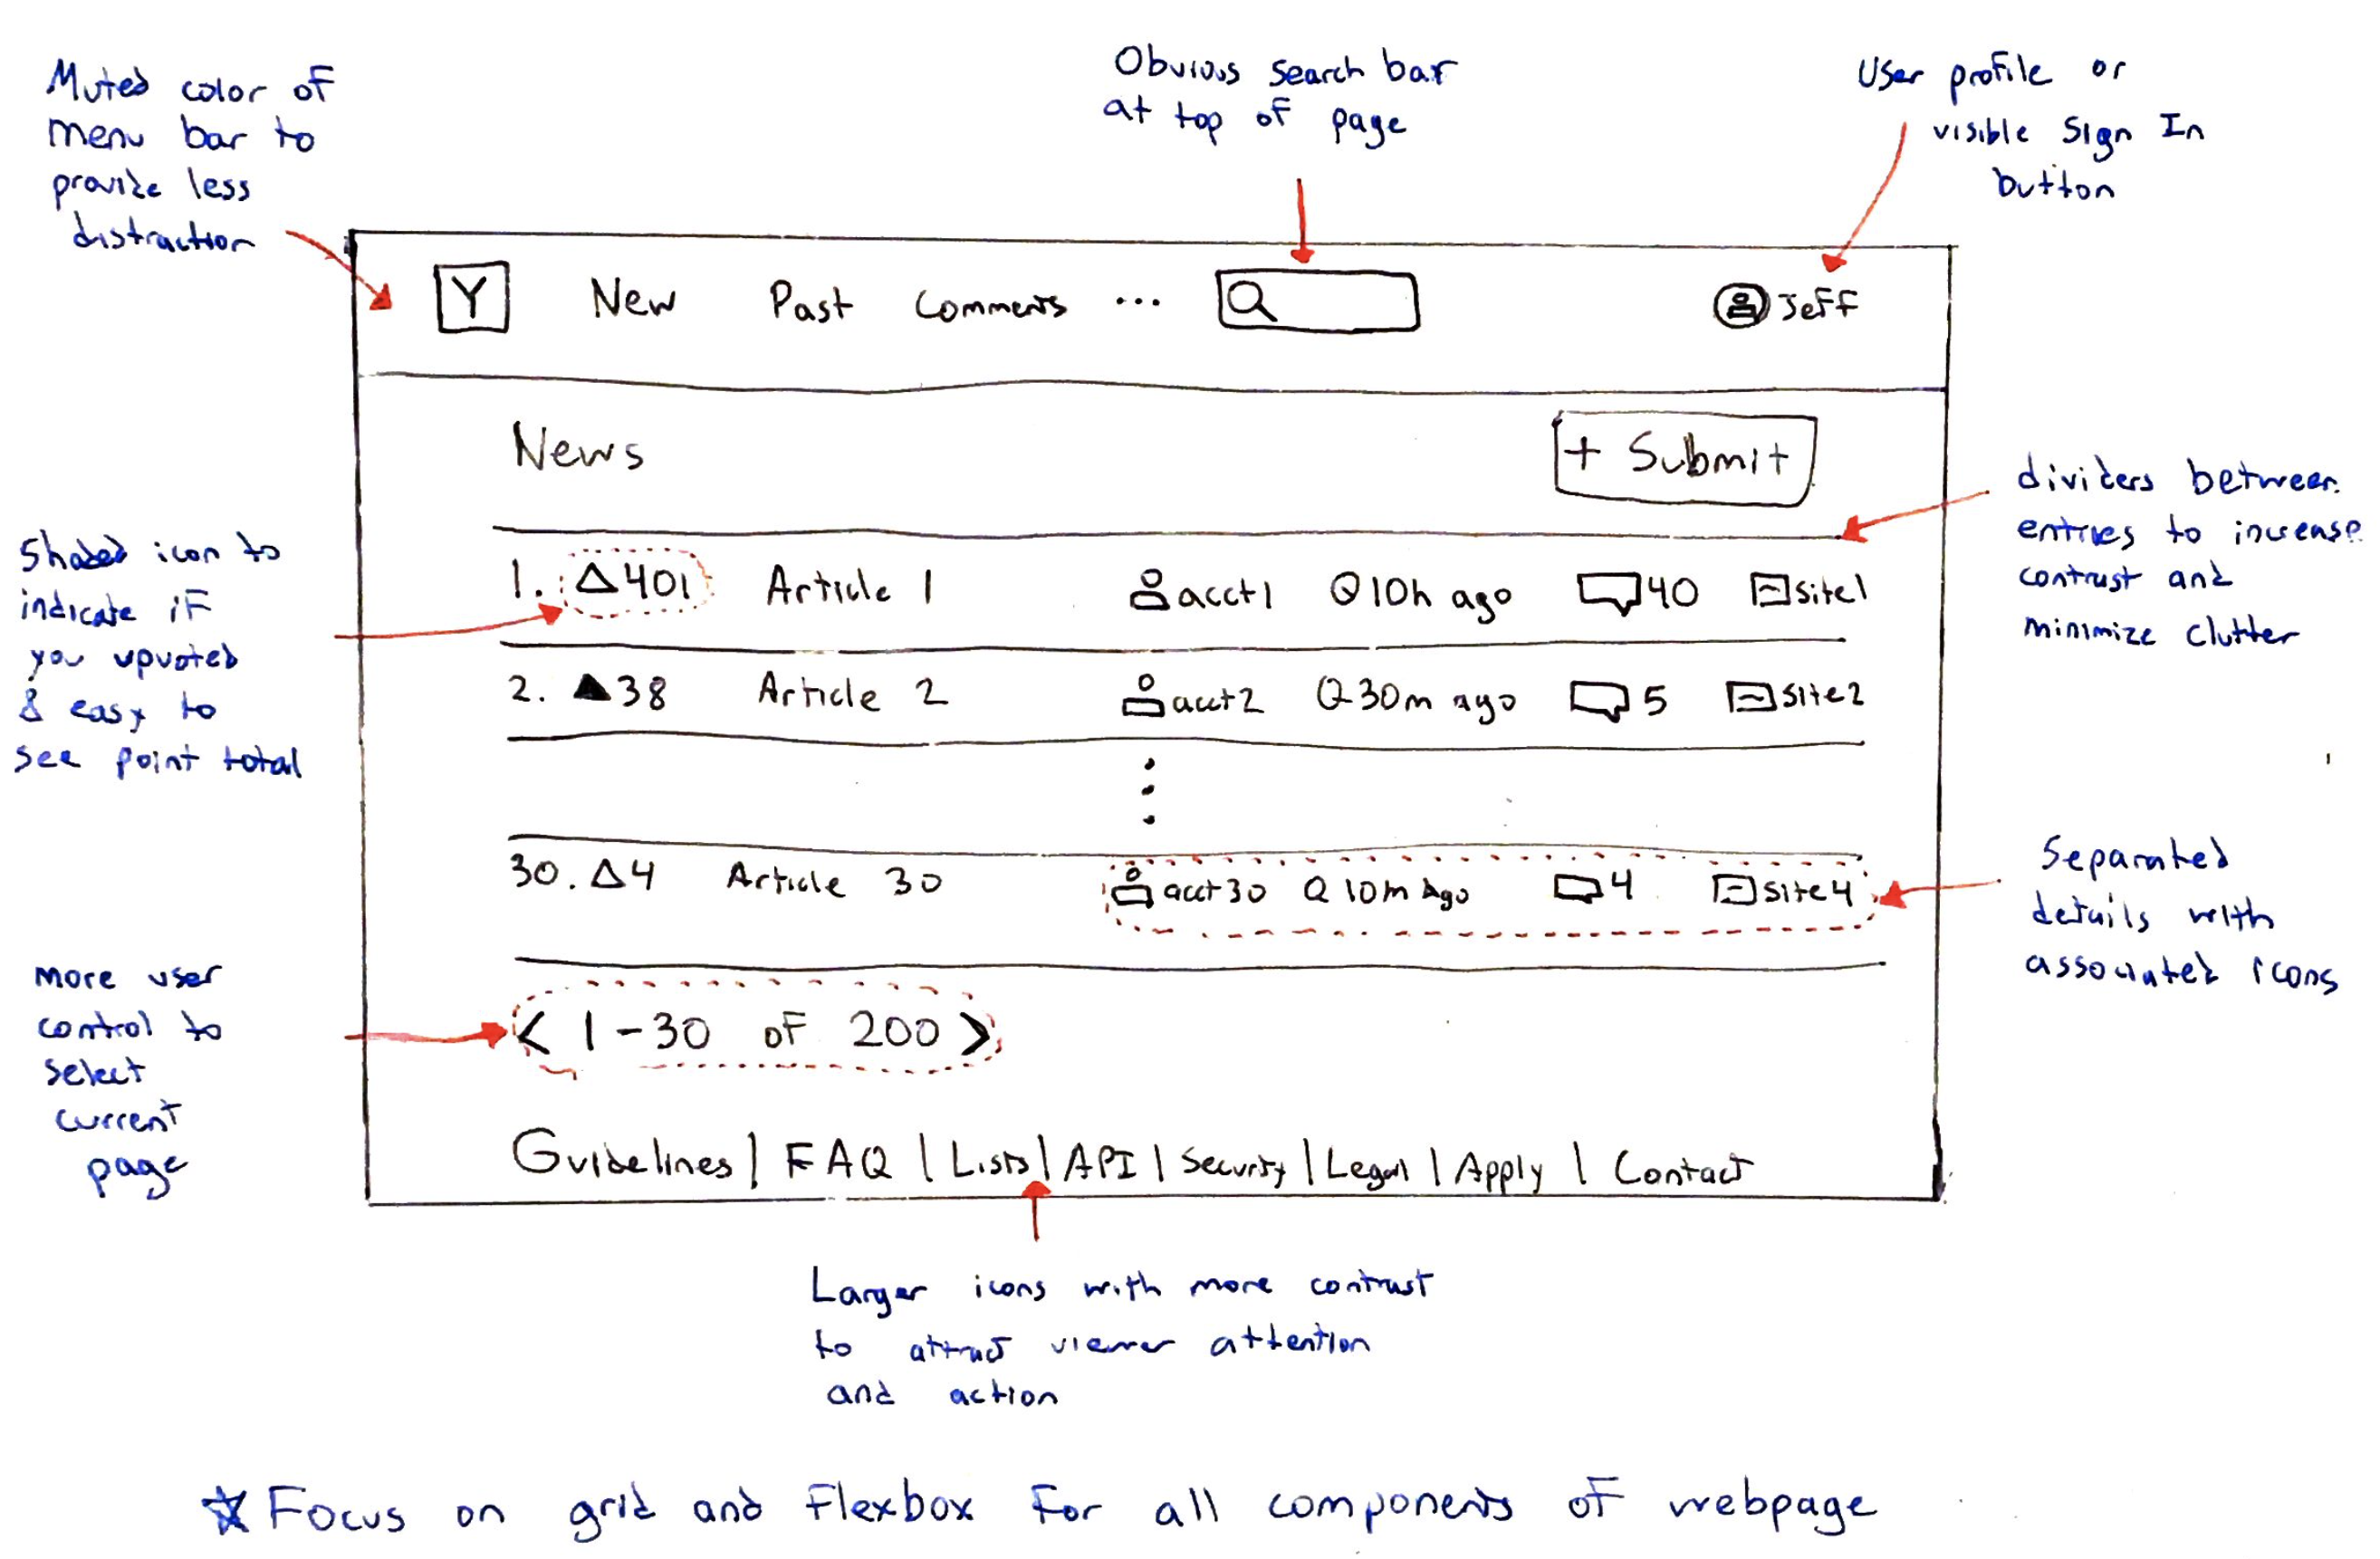 Muted color of
menu bar to
provide less
distraction
Obvious search bar
at top of page
User profile or
visible Sign In
button
Y New Past Comments ... Jeff
News + Submit
dividers between
entries to increase
contrast and
minimize clutter
Shaded icon to
indicate if
you upvoted
& easy to
see point total
1. 401 Article 1 acct1 10h ago 40 site1
2. 38 Article 2 acct2 30m ago 5 site2
30. 4 Article 30 acct30 10m Ago 4 site4
Separated
details with
associated icons
more user
control to
select
current
page
< 1-30 of 200 >
Guidelines | FAQ | Lists | API | Security | Legal | Apply | Contact
Larger icons with more contrast
to attract viewer attention
and action
Focus on grid and flexbox for all components of webpage